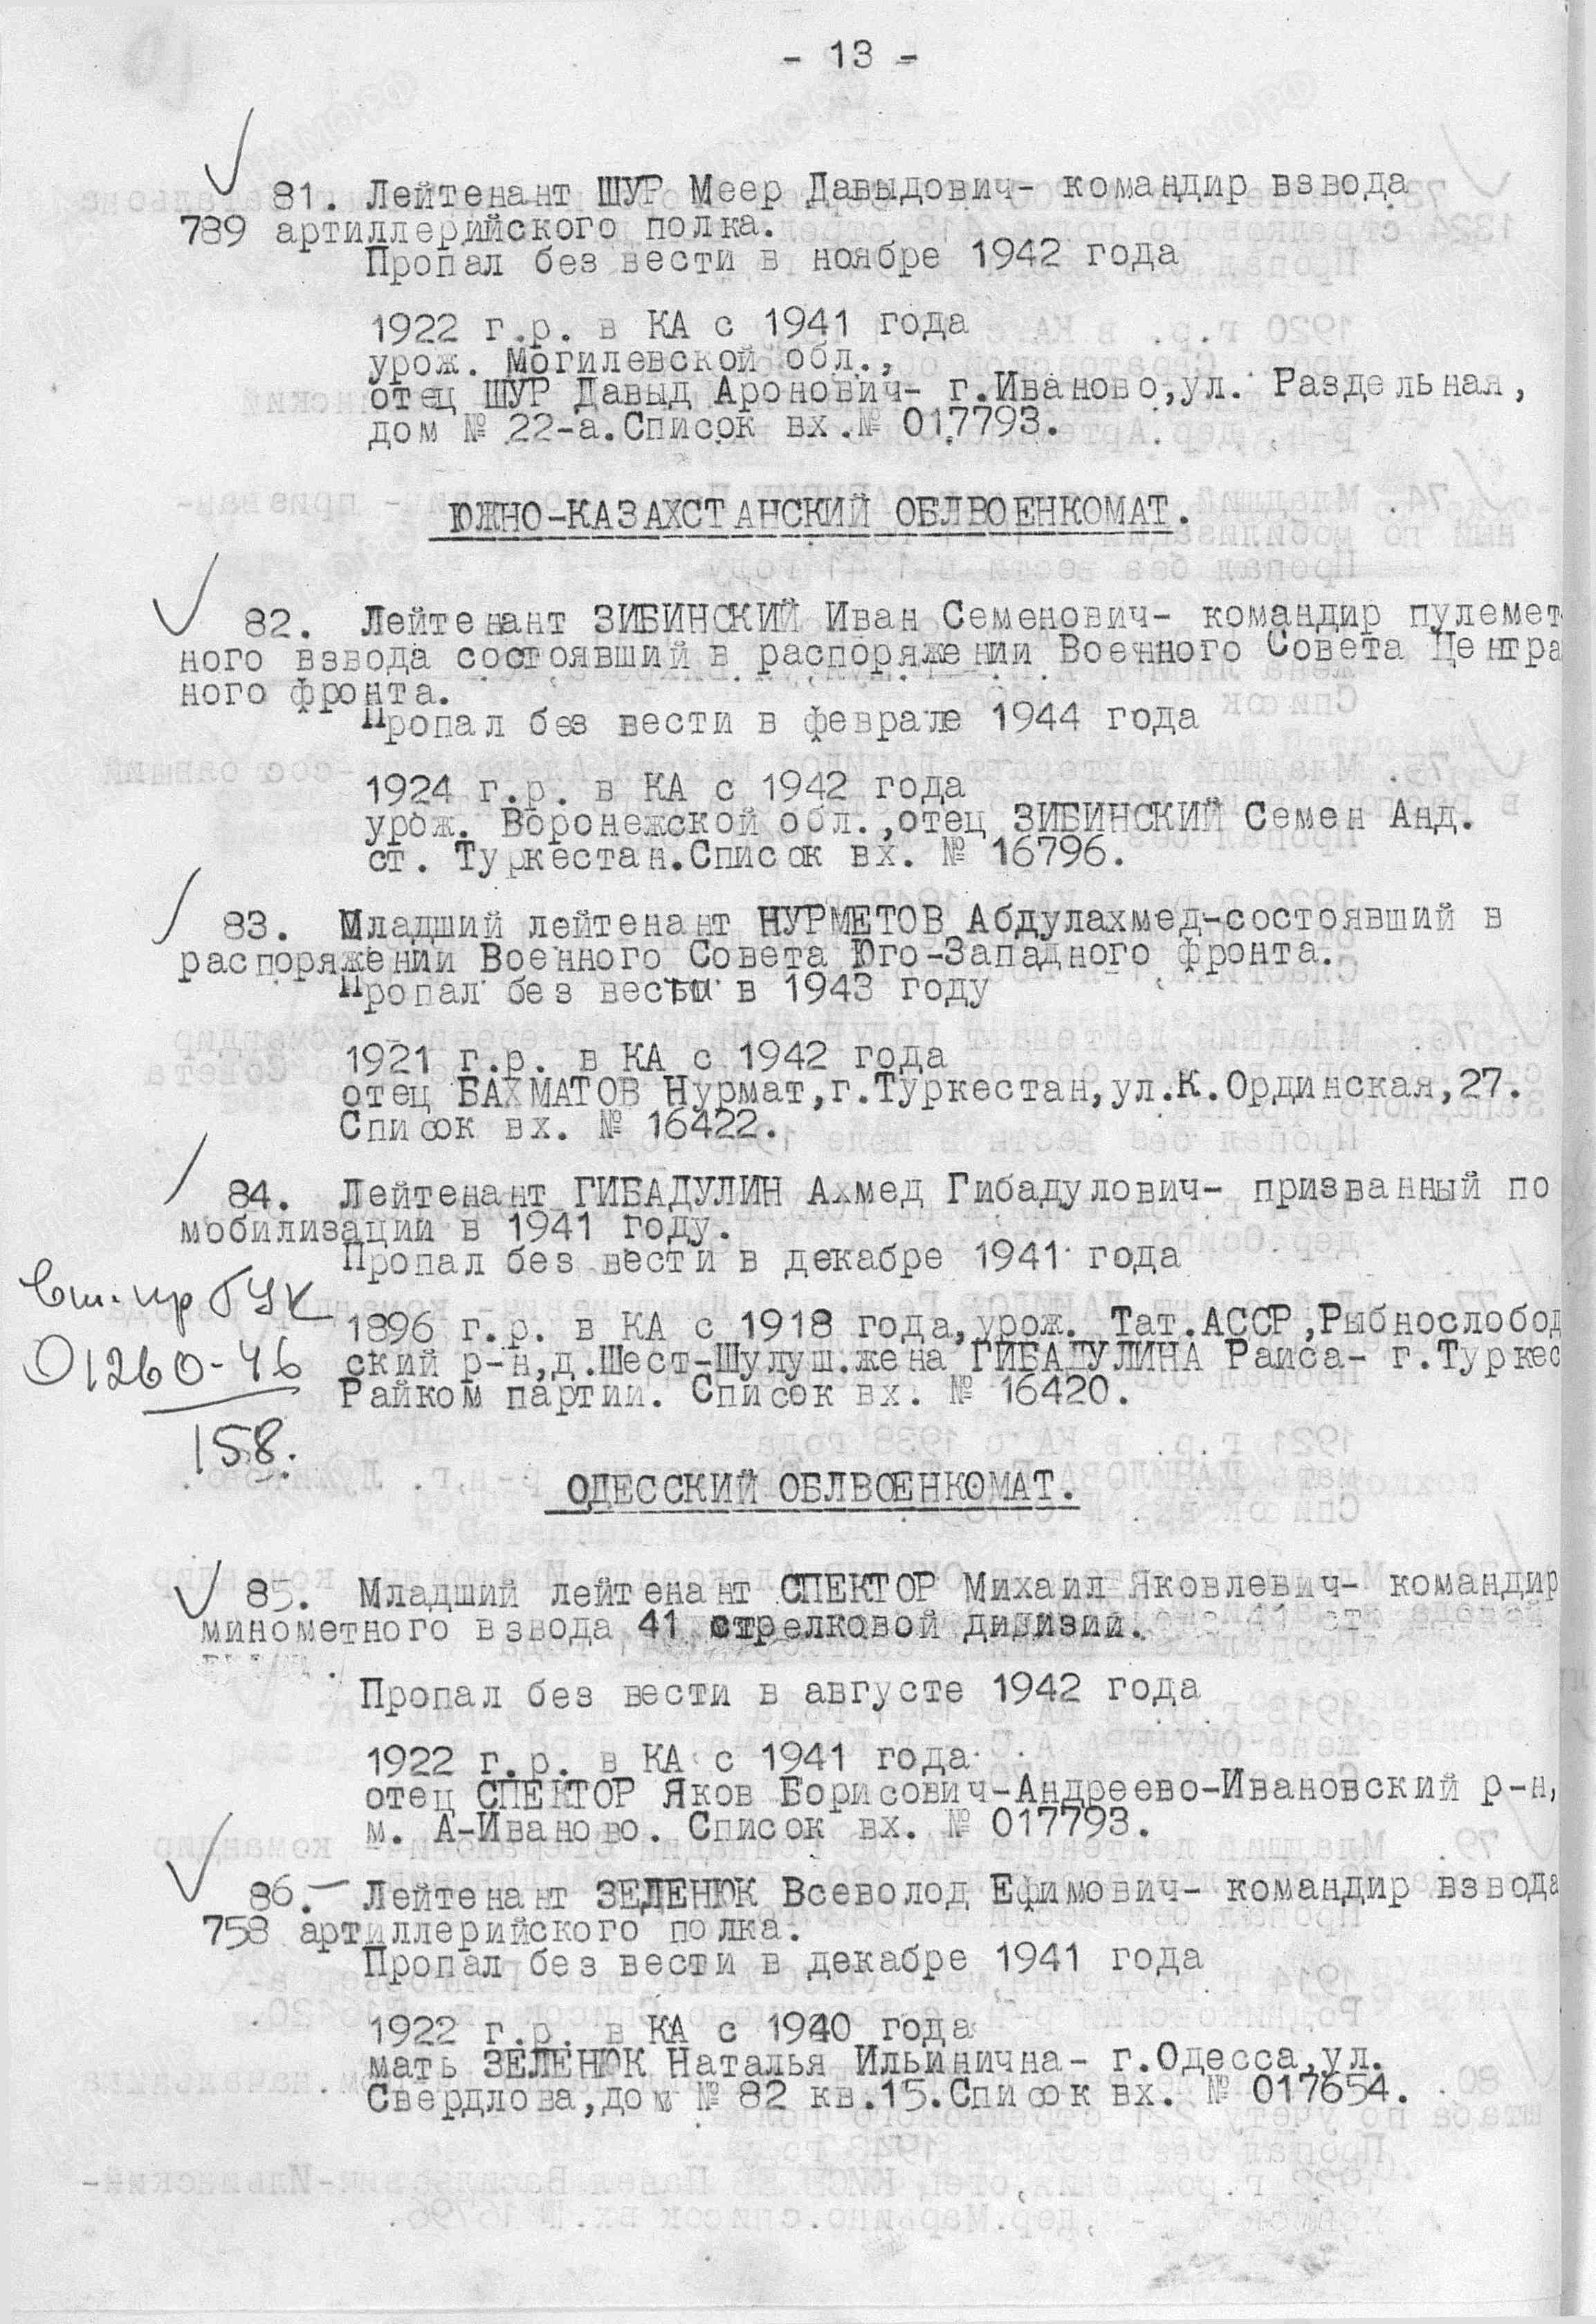 - 13 -
81. Лейтенант ШУР Меер Давыдович- командир взвода
789 артиллерийского полка.
Пропал без вести в ноябре 1942 года
1922 г.р. в КА с 1941 года
урож. Могилевской обл.,
отец ШУР Давыд Аронович- г.Иваново,ул. Раздельная,
дом № 22-а.Список вх.№ 017793.
ЮЖНО-КАЗАХСТАНСКИЙ ОБЛВОЕНКОМАТ.
82. Лейтенант ЗИБИНСКИЙ Иван Семенович- командир пулемет-
ного взвода состоявший в распоряжении Военного Совета Центра
ного фронта.
Пропал без вести в феврале 1944 года
1924 г.р. в КА с 1942 года
урож. Воронежской обл.,отец ЗИБИНСКИЙ Семен Анд.
ст. Туркестан.Список вх. № 16796.
83. Младший лейтенант НУРМЕТОВ Абдулахмед-состоявший в
распоряжении Военного Совета Юго-Западного фронта.
Пропал без вести в 1943 году
1921 г.р. в КА с 1942 года
отец БАХМАТОВ Нурмат,г.Туркестан,ул.К.Ординская,27.
Список вх. № 16422.
84. Лейтенант ГИБАДУЛИН Ахмед Гибадулович- призванный по
мобилизации в 1941 году.
Пропал без вести в декабре 1941 года
вт. пр ГУК
01260-46
158.
1896 г.р. в КА с 1918 года,урож. Тат.АССР,Рыбнослобод
ский р-н,д.Шест-Шулуш.жена ГИБАДУЛИНА Раиса- г.Туркес
Райком партии. Список вх. № 16420.
ОДЕССКИЙ ОБЛВОЕНКОМАТ.
85. Младший лейтенант СПЕКТОР Михаил Яковлевич- командир
минометного взвода 41 стрелковой дивизии.
Пропал без вести в августе 1942 года
1922 г.р. в КА с 1941 года
отец СПЕКТОР Яков Борисович-Андреево-Ивановский р-н,
м. А-Иваново. Список вх. № 017793.
86.- Лейтенант ЗЕЛЕНЮК Всеволод Ефимович- командир взвода
758 артиллерийского полка.
Пропал без вести в декабре 1941 года
1922 г.р. в КА с 1940 года
мать ЗЕЛЕНЮК Наталья Ильинична- г.Одесса,ул.
Свердлова,дом № 82 кв.15.Список вх. № 017654.